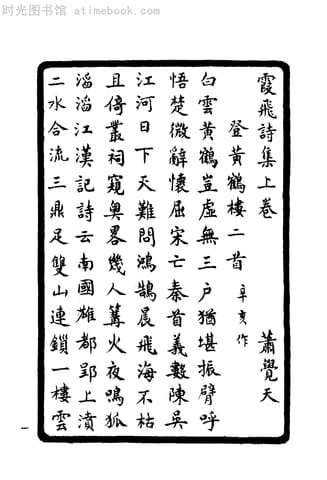 时光图书馆 atimebook.com
霞飛詩集上卷 蕭覺天
登黃鶴樓二首 辛亥作
白雲黃鶴豈虛無三戶猶堪振臂呼
悟楚微辭懷屈宋亡秦首義數陳吳
江河日下天難問鴻鵠晨飛海不枯
且倚叢祠窺奧畧幾人篝火夜鳴狐
滔滔江漢記詩云南國雄都郢上濆
二水合流三鼎足雙山連鎖一樓雲
一